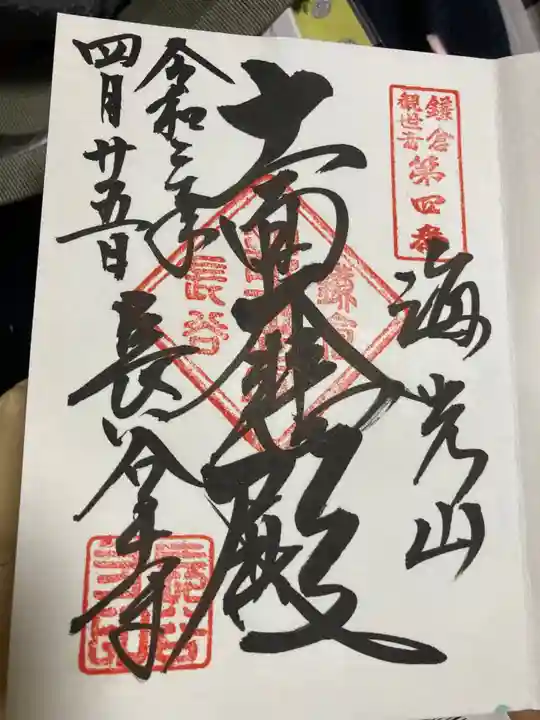 鎌倉
観世音
第四番
海光山
十一面大悲殿
鎌倉
長谷
令和三年
四月廿五日
長谷寺